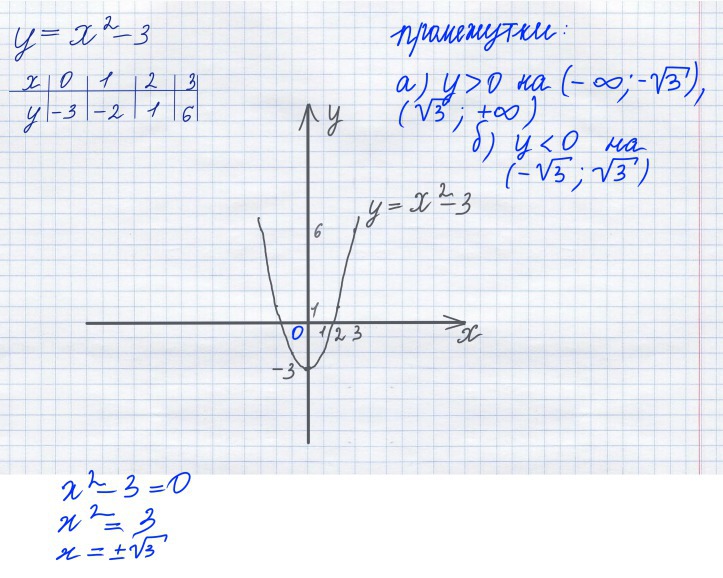 y = x² - 3
x 0 1 2 3
y -3 -2 1 6
промежутки:
а) y > 0 на (-∞; -√3),
(√3; +∞)
б) y < 0 на
(-√3; √3)
y
y = x² - 3
6
1
0 1 2 3 x
-3
x² - 3 = 0
x² = 3
x = ±√3